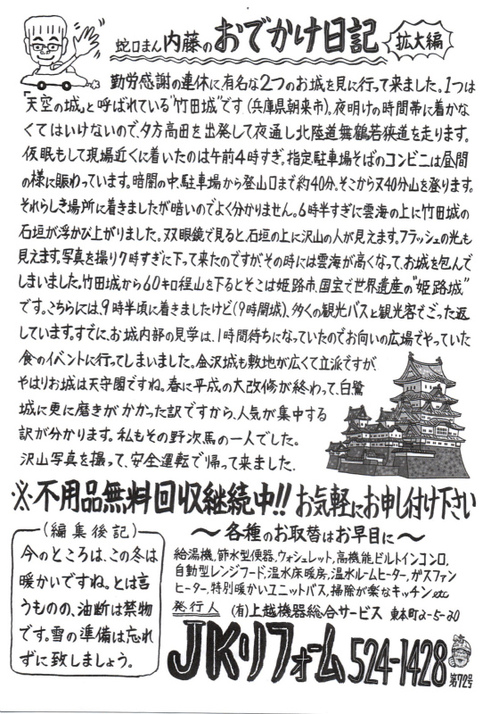 蛇口まん内藤のおでかけ日記 拡大編
勤労感謝の連休に有名な2つのお城を見に行って来ました。1つは
「天空の城」と呼ばれている"竹田城"です(兵庫県朝来市)。夜明けの時間帯に着かな
くてはいけないので、夕方高田を出発して夜通し北陸道舞鶴若狭道を走ります。
仮眠もして現場近くに着いたのは午前4時すぎ、指定駐車場そばのコンビニは昼間
の様に賑わっています。暗闇の中、駐車場から登山口まで約40分、そこから又40分山を登ります。
それらしき場所に着きましたが暗いのでよく分かりません。6時半すぎに雲海の上に竹田城の
石垣が浮かび上がりました。双眼鏡で見ると、石垣の上に沢山の人が見えます。フラッシュの光も
見えます。写真を撮り7時すぎに下って来たのですが、その時には雲海が高くなって、お城を包んで
しまいました。竹田城から60キロ程山を下るとそこは姫路市、国宝で世界遺産の"姫路城"
です。こちらには、9時半頃に着きましたけど(9時開城)、多くの観光バスと観光客でごった返
しています。すでに、お城内部の見学は、1時間待ちになっていたのでお向いの広場でやっていた
食のイベントに行ってしまいました。金沢城も敷地が広くて立派ですが、
やはりお城は天守閣ですね。春に平成の大改修が終わって、白鷺
城に更に磨きがかかった訳ですから、人気が集中する
訳が分かります。私もその野次馬の一人でした。
沢山写真を撮って、安全運転で帰って来ました。
※不用品無料回収継続中!! お気軽にお申し付け下さい
(編集後記)
今のところは、この冬は
暖かいですね。とは言
うものの、油断は禁物
です。雪の準備は忘れ
ずに致しましょう。
〜各種のお取替はお早目に〜
給湯機、節水型便器、ウォシュレット、高機能ビルトインコンロ、
自動型レンジフード、温水床暖房、温水ルームヒーター、ガスファン
ヒーター、特別暖かいユニットバス、掃除が楽なキッチン、etc
発行人 (有)上越機器総合サービス 東本町2-5-20
JKリフォーム 524-1428 第72号